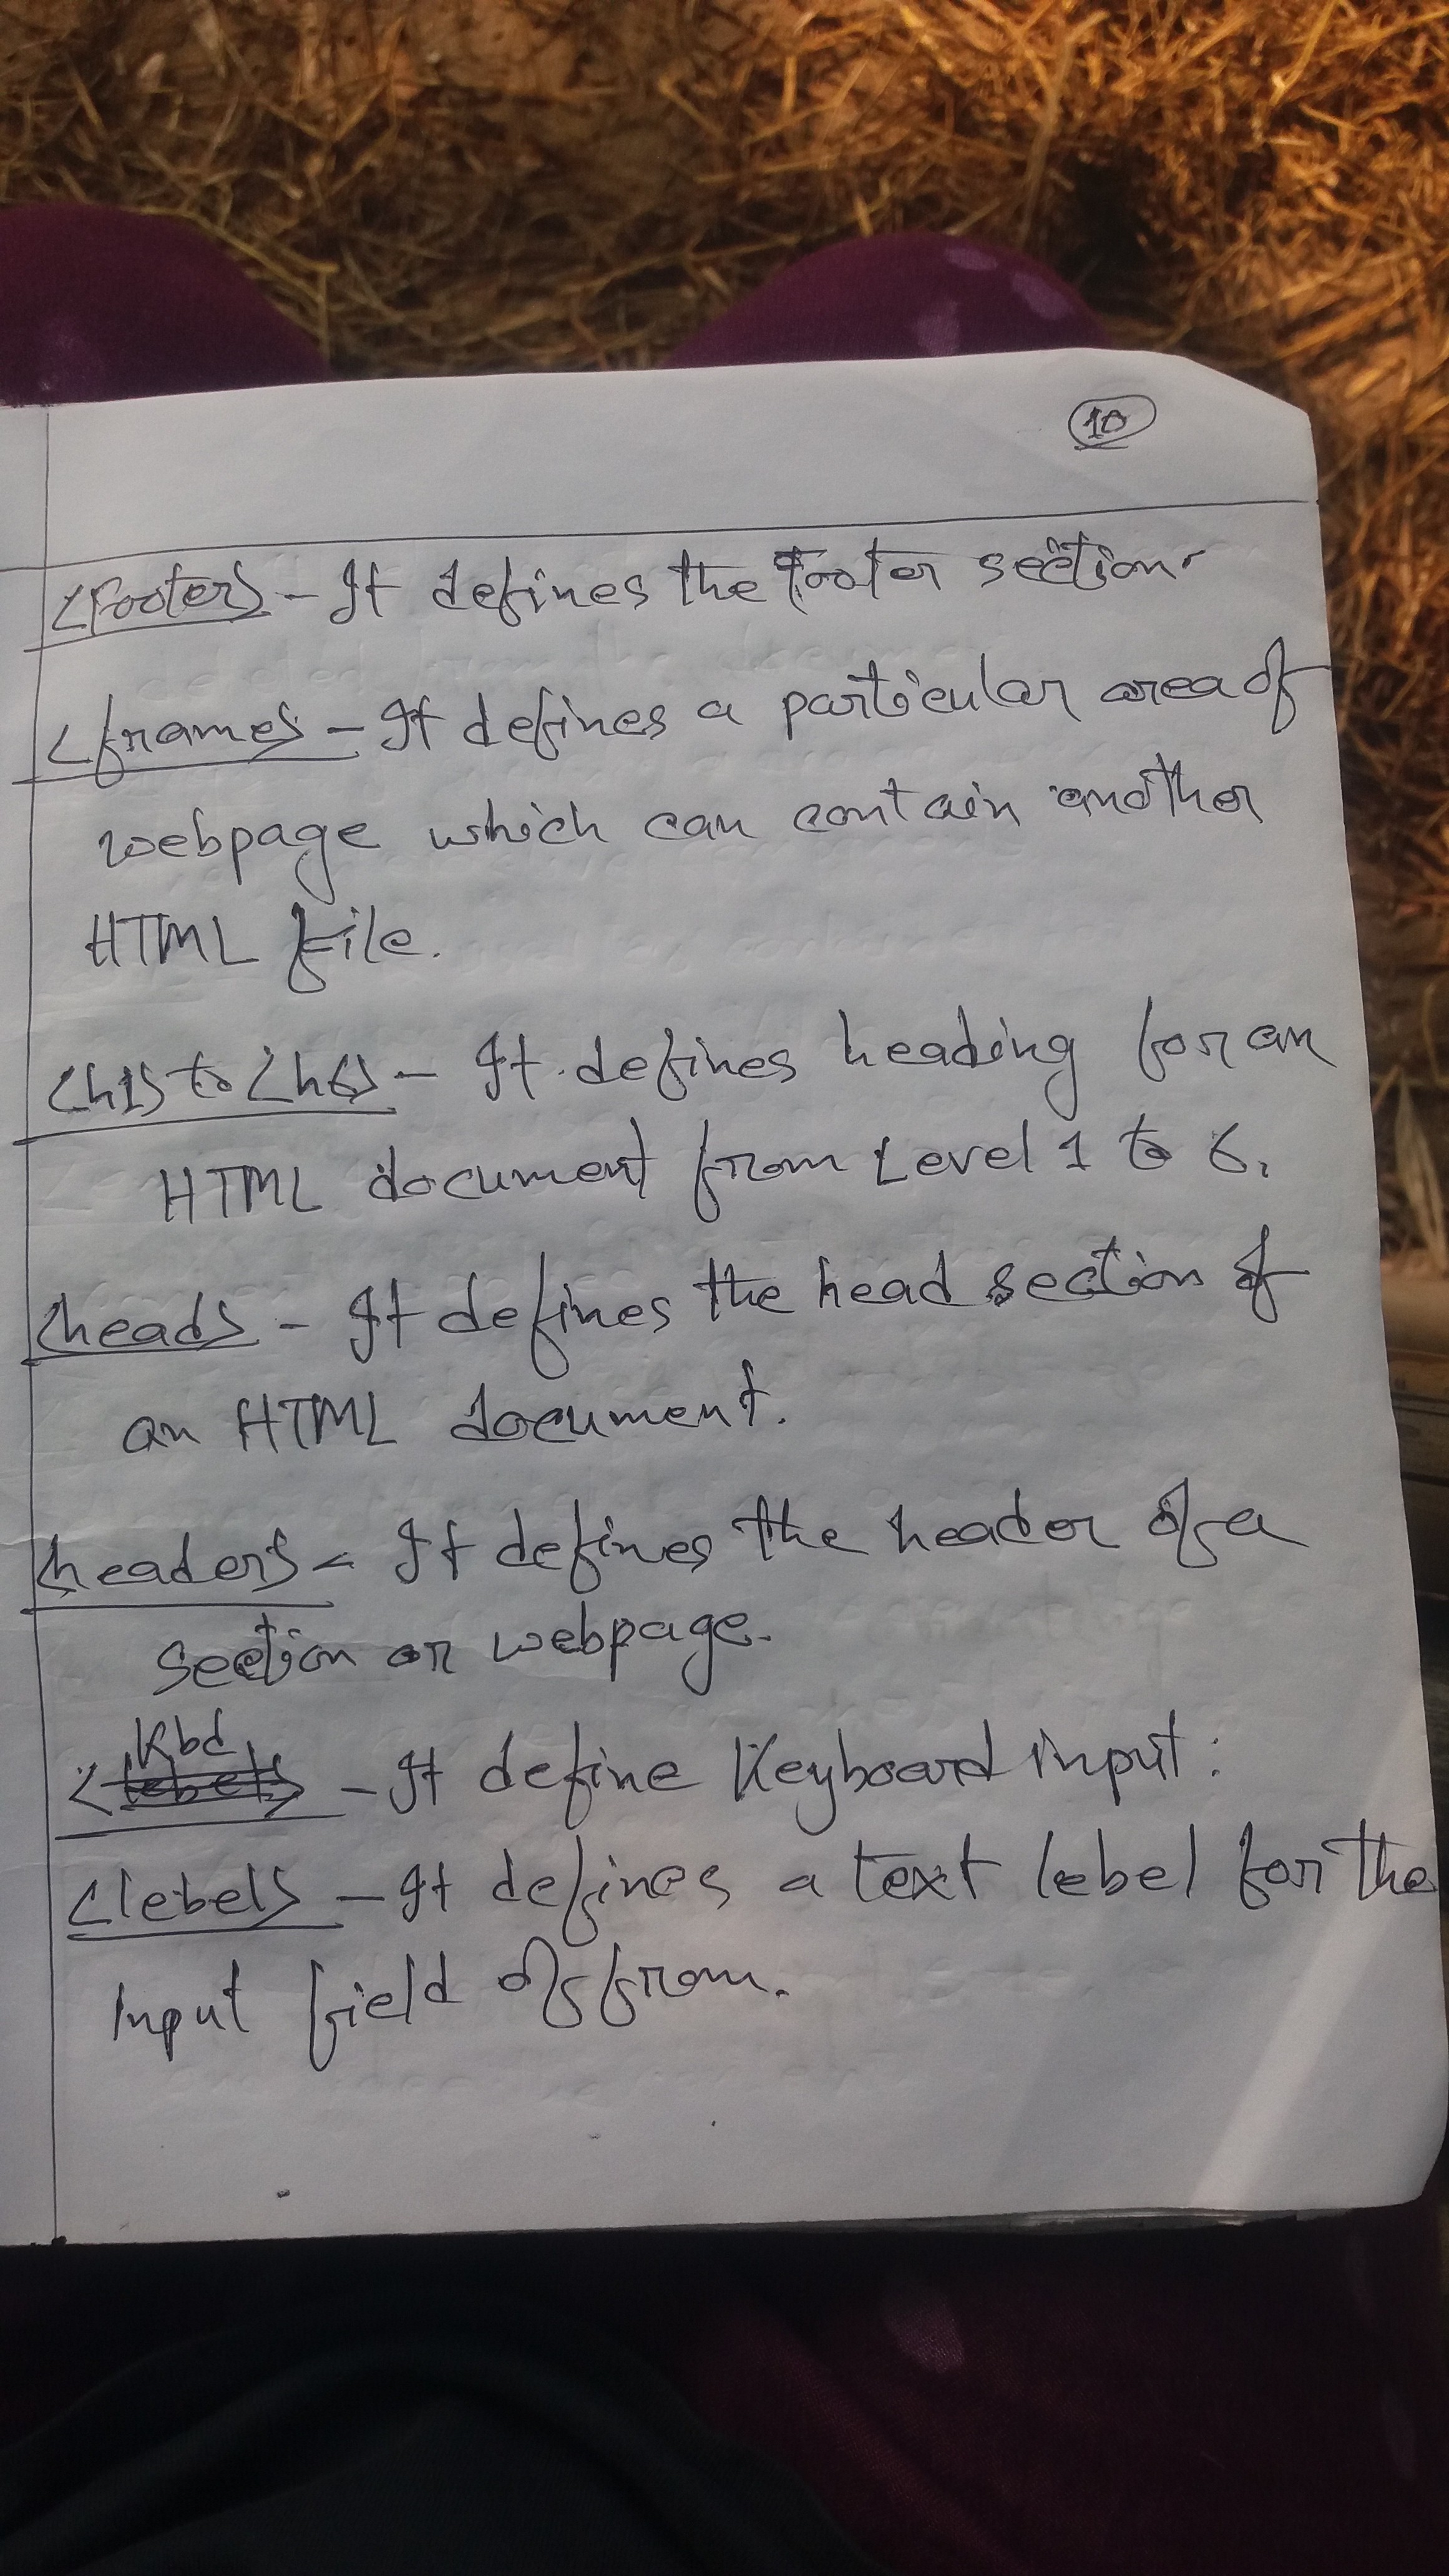 10
<footer> - It defines the footer section.
<frame> - It defines a particular area of
webpage which can contain another
HTML file.
<h1> to <h6> - It defines heading for an
HTML document from Level 1 to 6.
<head> - It defines the head section of
an HTML document.
<header> - It defines the header of a
section or webpage.
<Kbd> - It define Keyboard input:
<lebel> - It defines a text lebel for the
Input field of from.